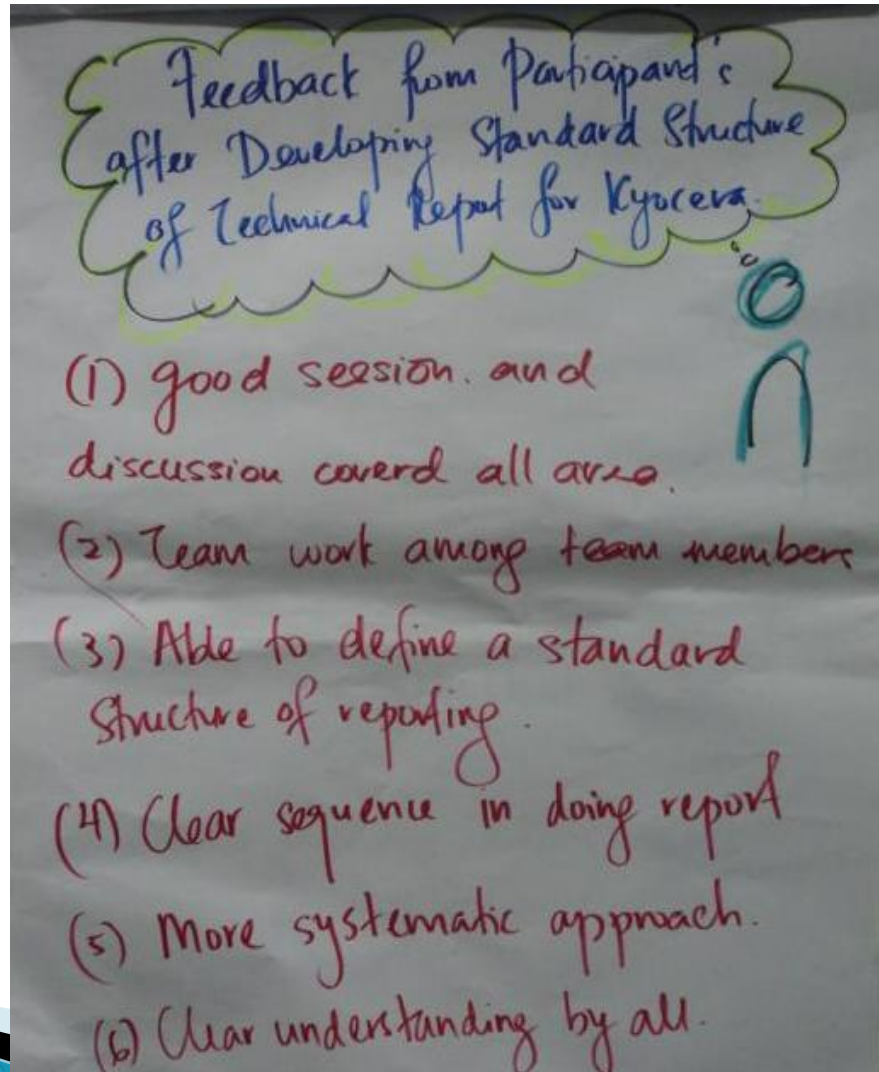 Feedback from Participant's
after Developing Standard Structure
of Technical Report for Kyocera.
(1) good session. and
discussion coverd all area.
(2) Team work among team members
(3) Able to define a standard
structure of reporting.
(4) Clear sequence in doing report
(5) More systematic approach.
(6) Clear understanding by all.